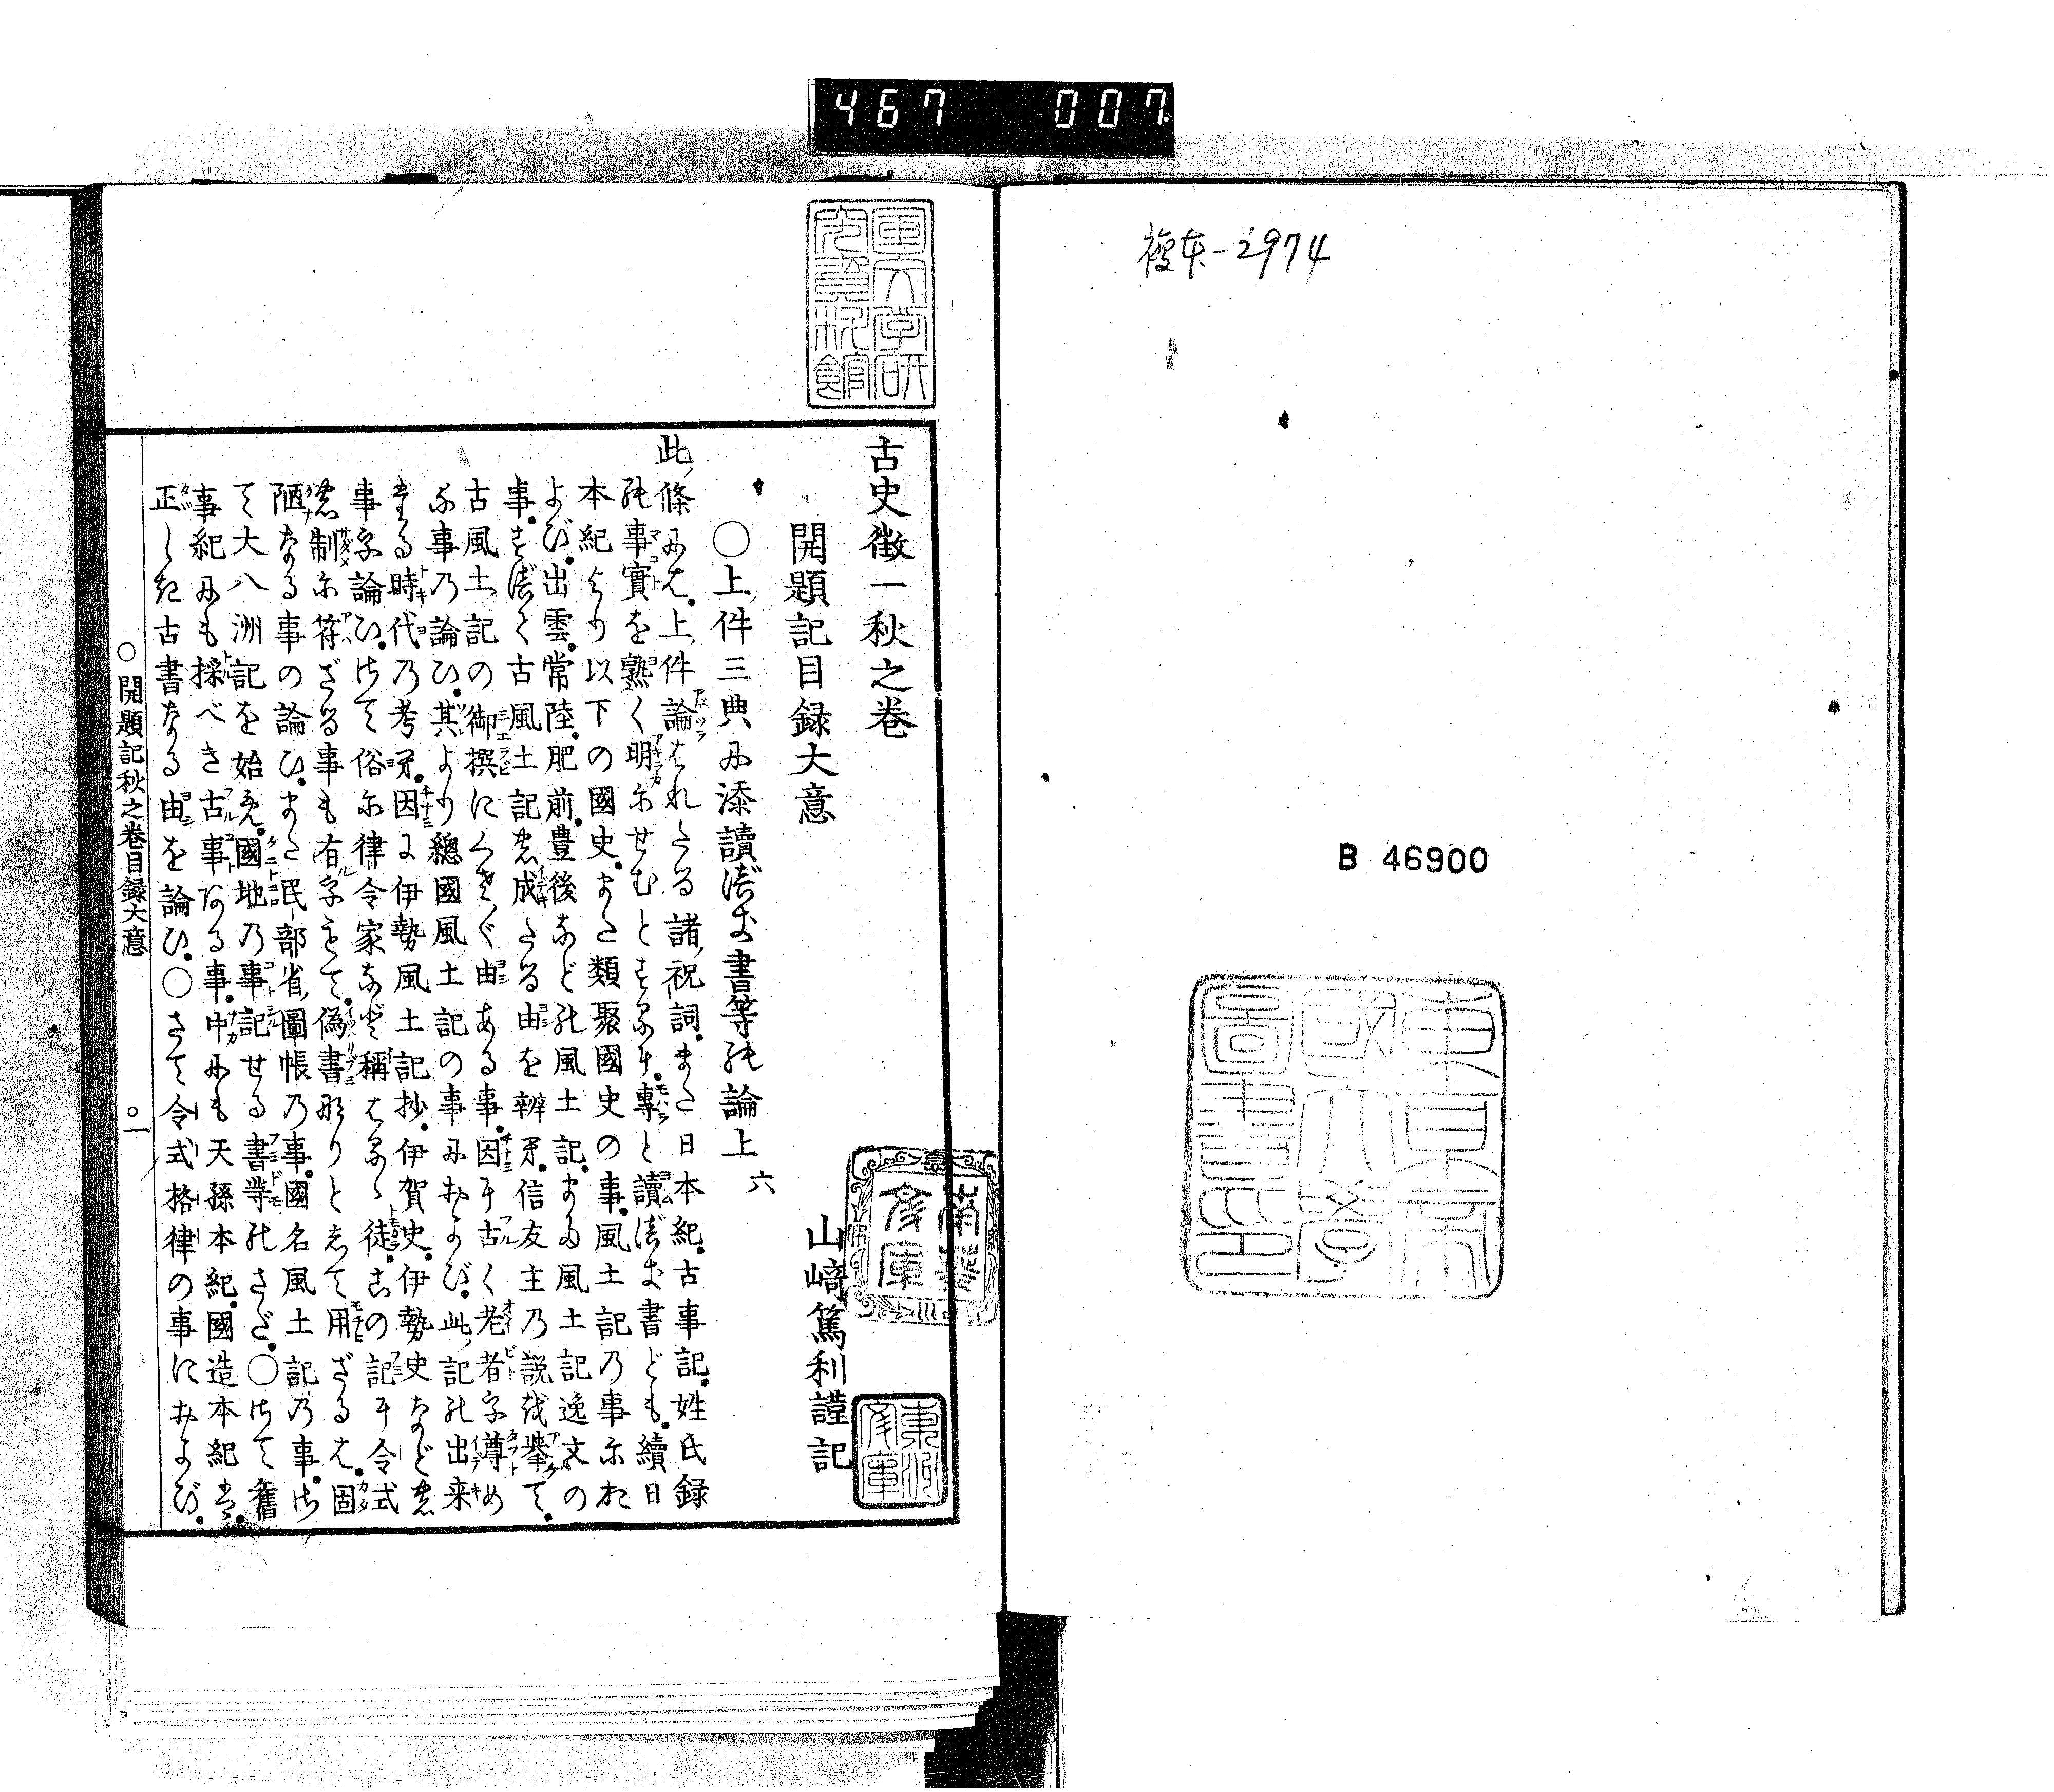 467 007
複本-2974
B 46900
東京帝
國大學
圖書印
古史徴一秋之巻
開題記目録大意
山﨑篤利謹記
南葵
文庫
〇上件三典に添讀べき書等の論上 六
此條には。上件論はれたる諸祝詞。また日本紀。古事記。姓氏録
の事實を熟く明にせむとするに。專と讀べき書ども。續日
本紀より以下の國史。また類聚國史の事。風土記の事にお
よび。出雲。常陸。肥前。豊後などの風土記。また風土記逸文の
事。すべて古風土記の成たる由を辨へ。信友主の説を擧て。
古風土記の御撰に
る事の論ひ。其より總國風土記の事におよび。此記の出来
たる時代の考へ。因に伊勢風土記抄。伊賀史。伊勢史などの
事を論ひ。さて俗に律令家など稱はるゝ徒。この記を令式
の制に符ざる事も有をもて。偽書なりとして用ざるは。固
陋なる事の論ひ。また民部省圖帳の事。國名風土記の事。さ
て大八洲記を始め。國地の事記せる書等のさだ。〇さて舊
事紀にも採べき古事ある事。中にも天孫本紀。國造本紀は。
正しき古書なる由を論ひ。〇さて令式格律の事におよび。
〇開題記秋之巻目録大意 〇一